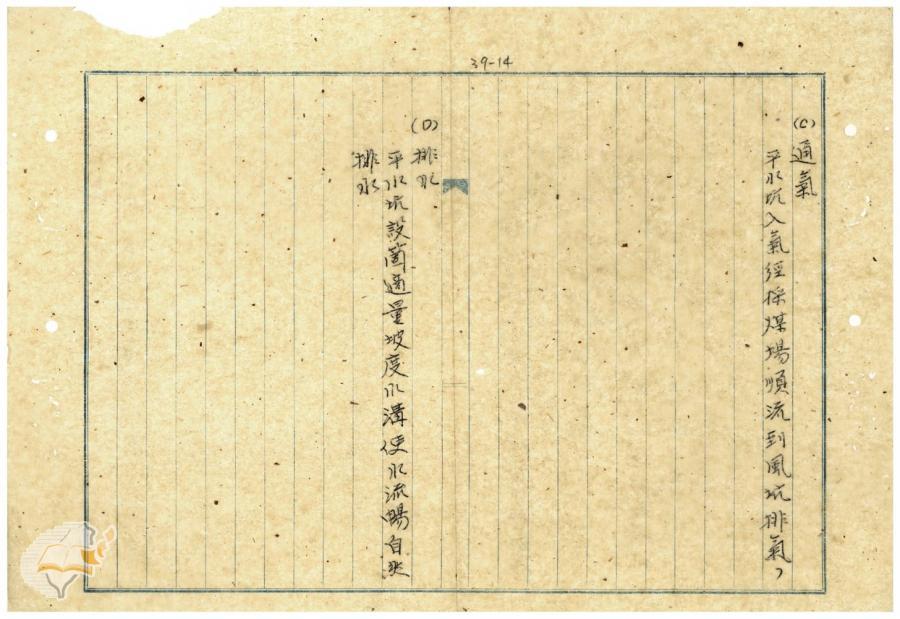 39-14
(C) 通氣
平水坑入氣經採煤場順流到風坑排氣,
(D) 排水
平水坑設箇適量坡度水溝使水流暢自然
排水